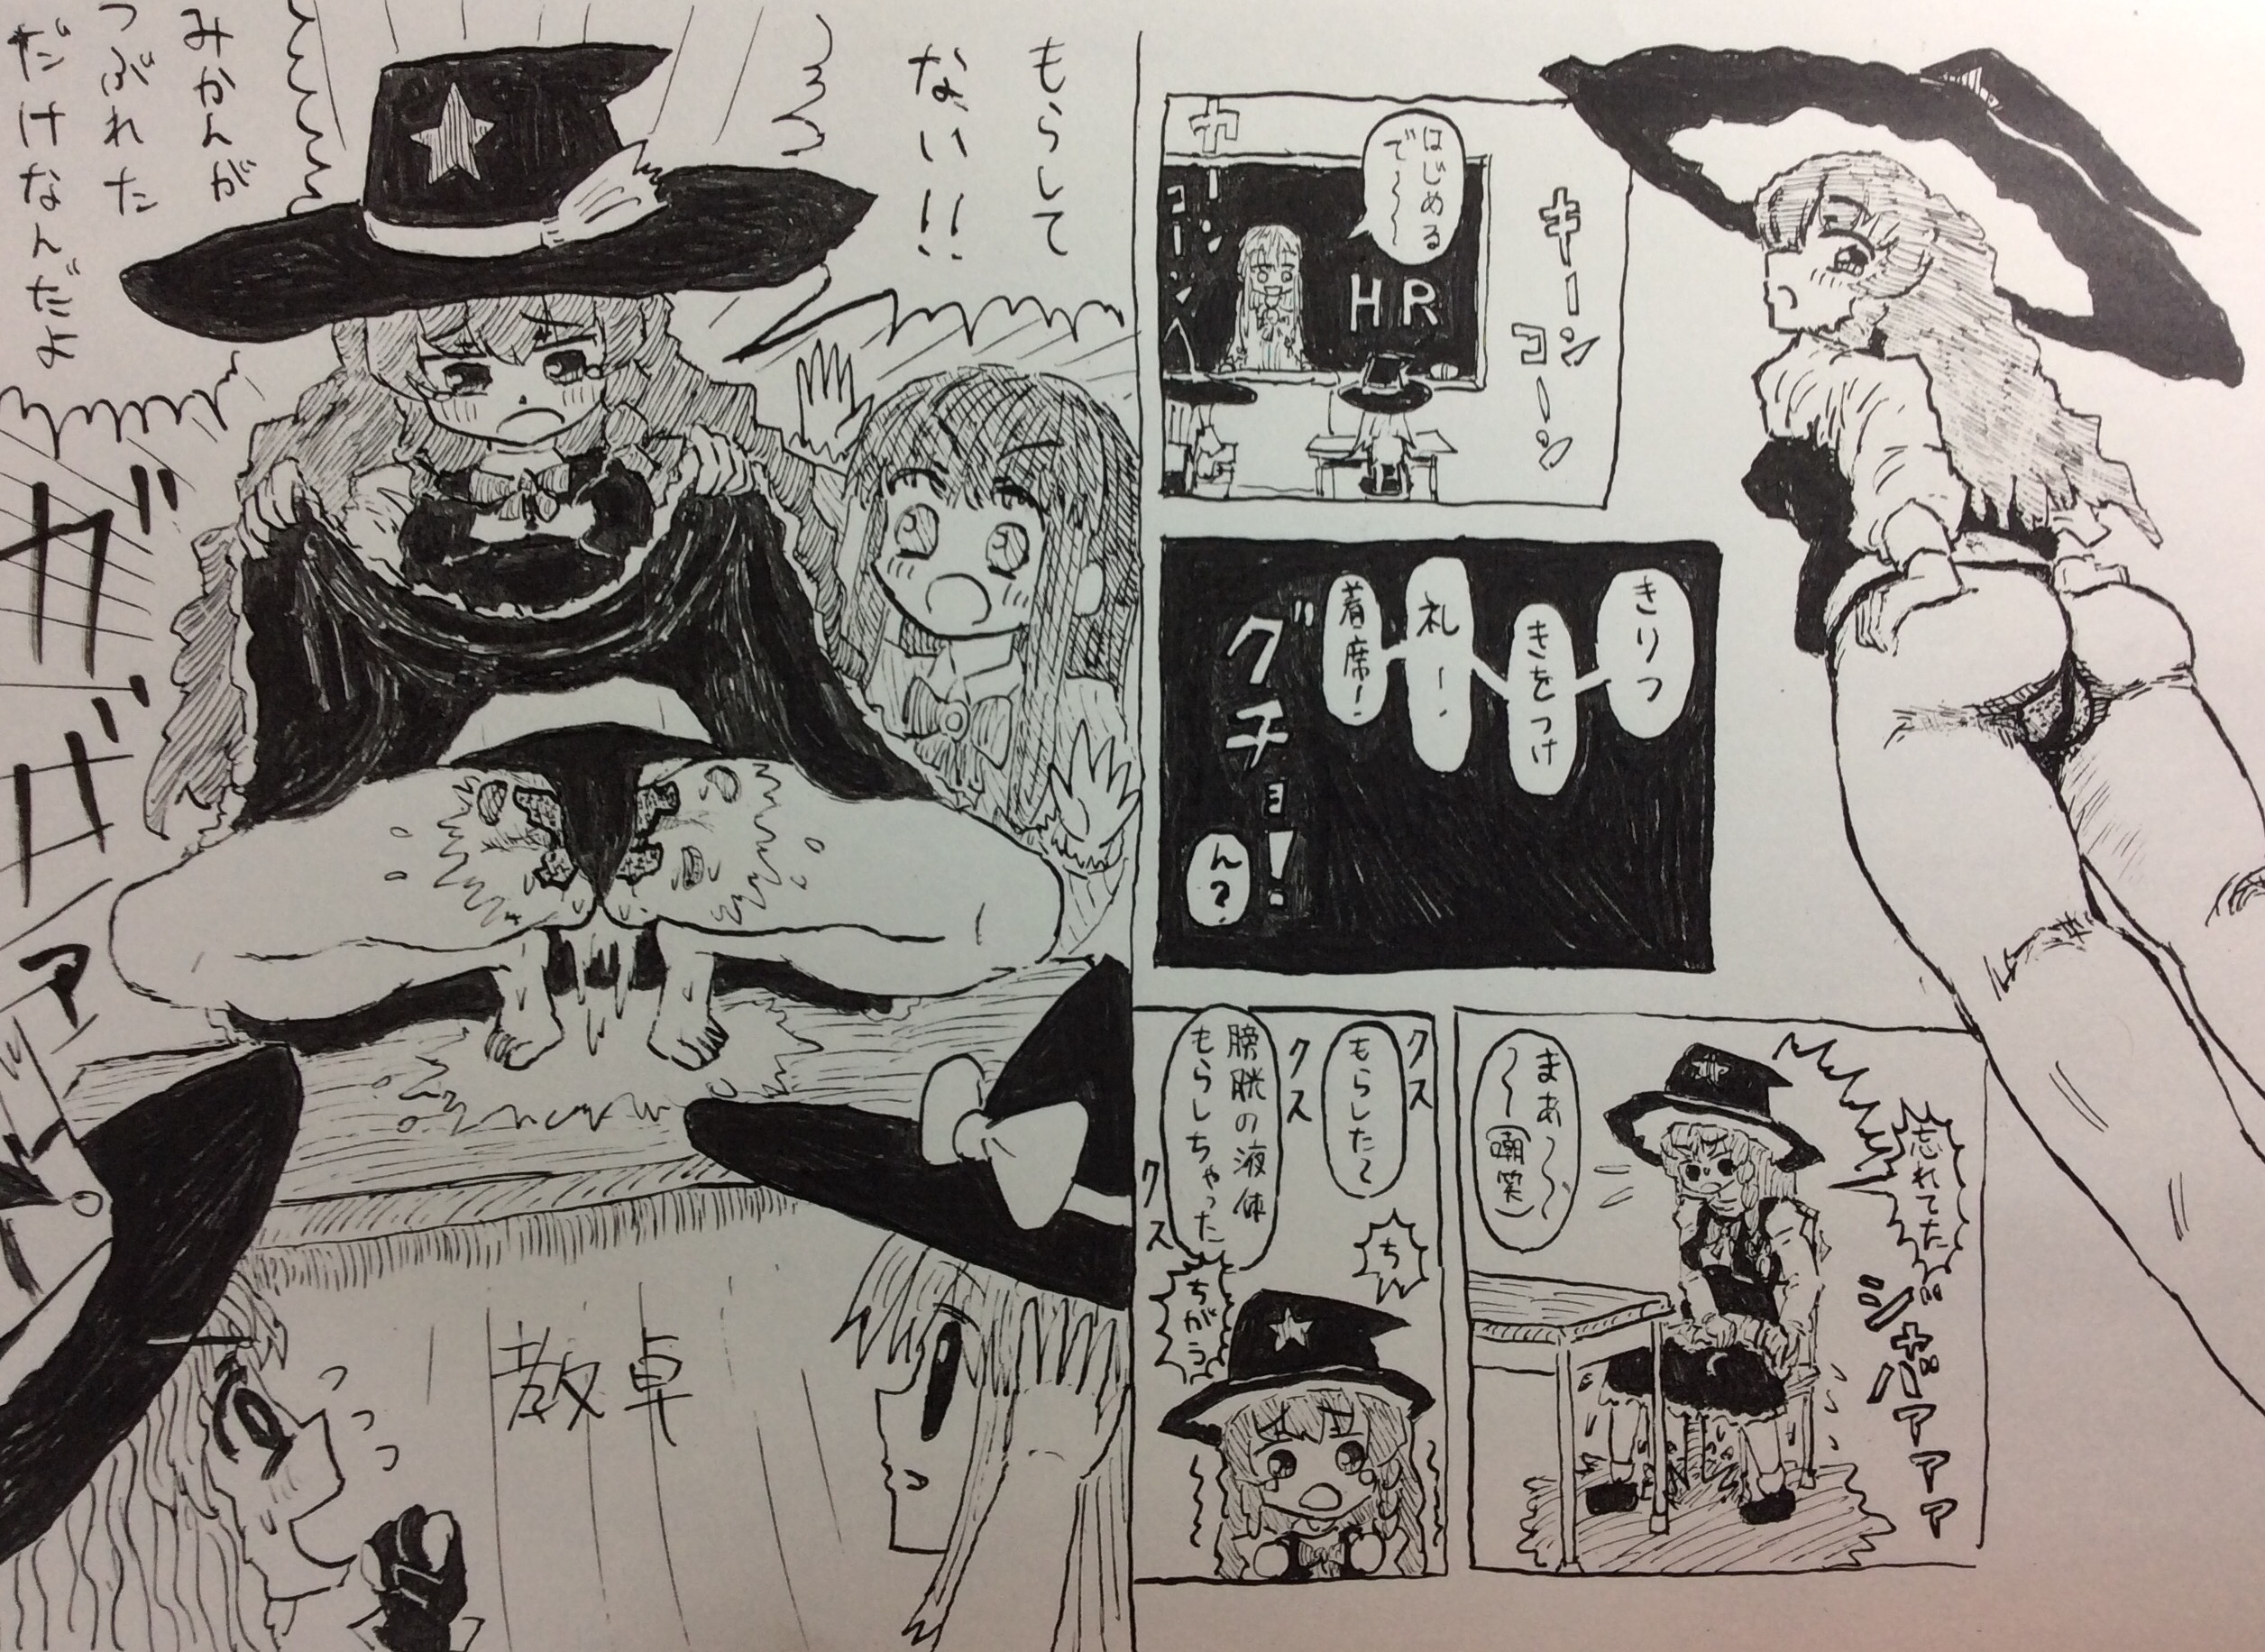 キーンコーン
カーンコーン
はじめる
で〜〜
HR
きりつ
きをつけ
礼ー!
着席!
グチョ!
ん?
忘れてた
ジャバァァァァ
まあ〜〜
〜〜(嘲笑)
クス
もらした〜
クス
膀胱の液体
もらしちゃった
クス
ち
ちがう
もらして
ない!!
みかんが
つぶれた
だけなんだよ
ガバァ
教卓